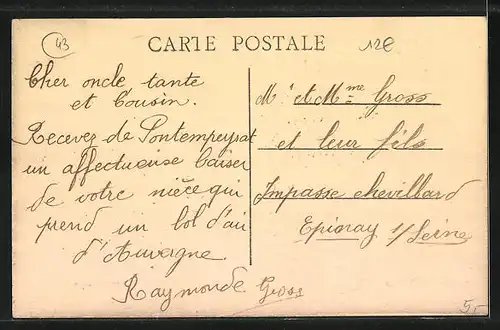 43
CARTE POSTALE
12€
Cher oncle tante
et Cousin.
Recevez de Pontempeyrat
un affectueuse baiser
de votre nièce qui
prend un bol d'air
d'Auvergne
Raymonde Gross
Mr et Mme Gross
et leur fils
Impasse chevillard
Epinay s/ Seine